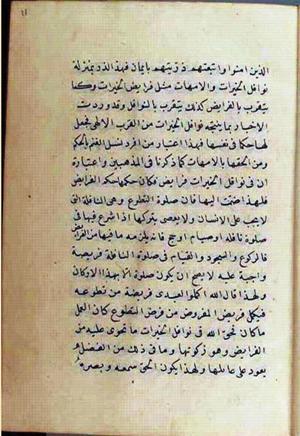 الذين امنوا واتبعتهم ذريتهم بايمان فهذا الذي بمنزلة
نوافل الخيرات والامهات مثل فرايض الخيرات وكما
يتقرب بالفرايض كذلك يتقرب بالنوافل وقد وردت
الاخبار بما ينتجه نوافل الخيرات من القرب الالهي فجعل
لها حكما في نفسها فهذا اعتبار من افرد نسل الغنم بالحكم
ومن الحقها بالامهات كما ذكرنا في المذهبين واعتباره
ان في نوافل الخيرات فرايض فكان حكمها حكم الفرايض
فلهذا اضفت اليها فان صلوة التطوع وهي النافلة التي
لا يجب على الانسان ولا يعصى بتركها اذا شرع فيها في
صلوة نافلة او صيام او حج فانه يلزمه ما فيها من الفرايض
فالركوع والسجود والقيام في صلوة النافلة فريضة
واجبة عليه لا يصح ان يكون صلوة الا بهذا الاركان
ولهذا قال الله اكملوا لعبدي فريضته من تطوعه
فيكمل فرض المفروض من فرض التطوع كان العمل
ما كان فحق الله في نوافل الخيرات ما تحوي عليه من
الفرايض وهو زكوتها وما في ذلك من الفضل
يعود على عاملها ولهذا يكون الحق سمعه وبصره